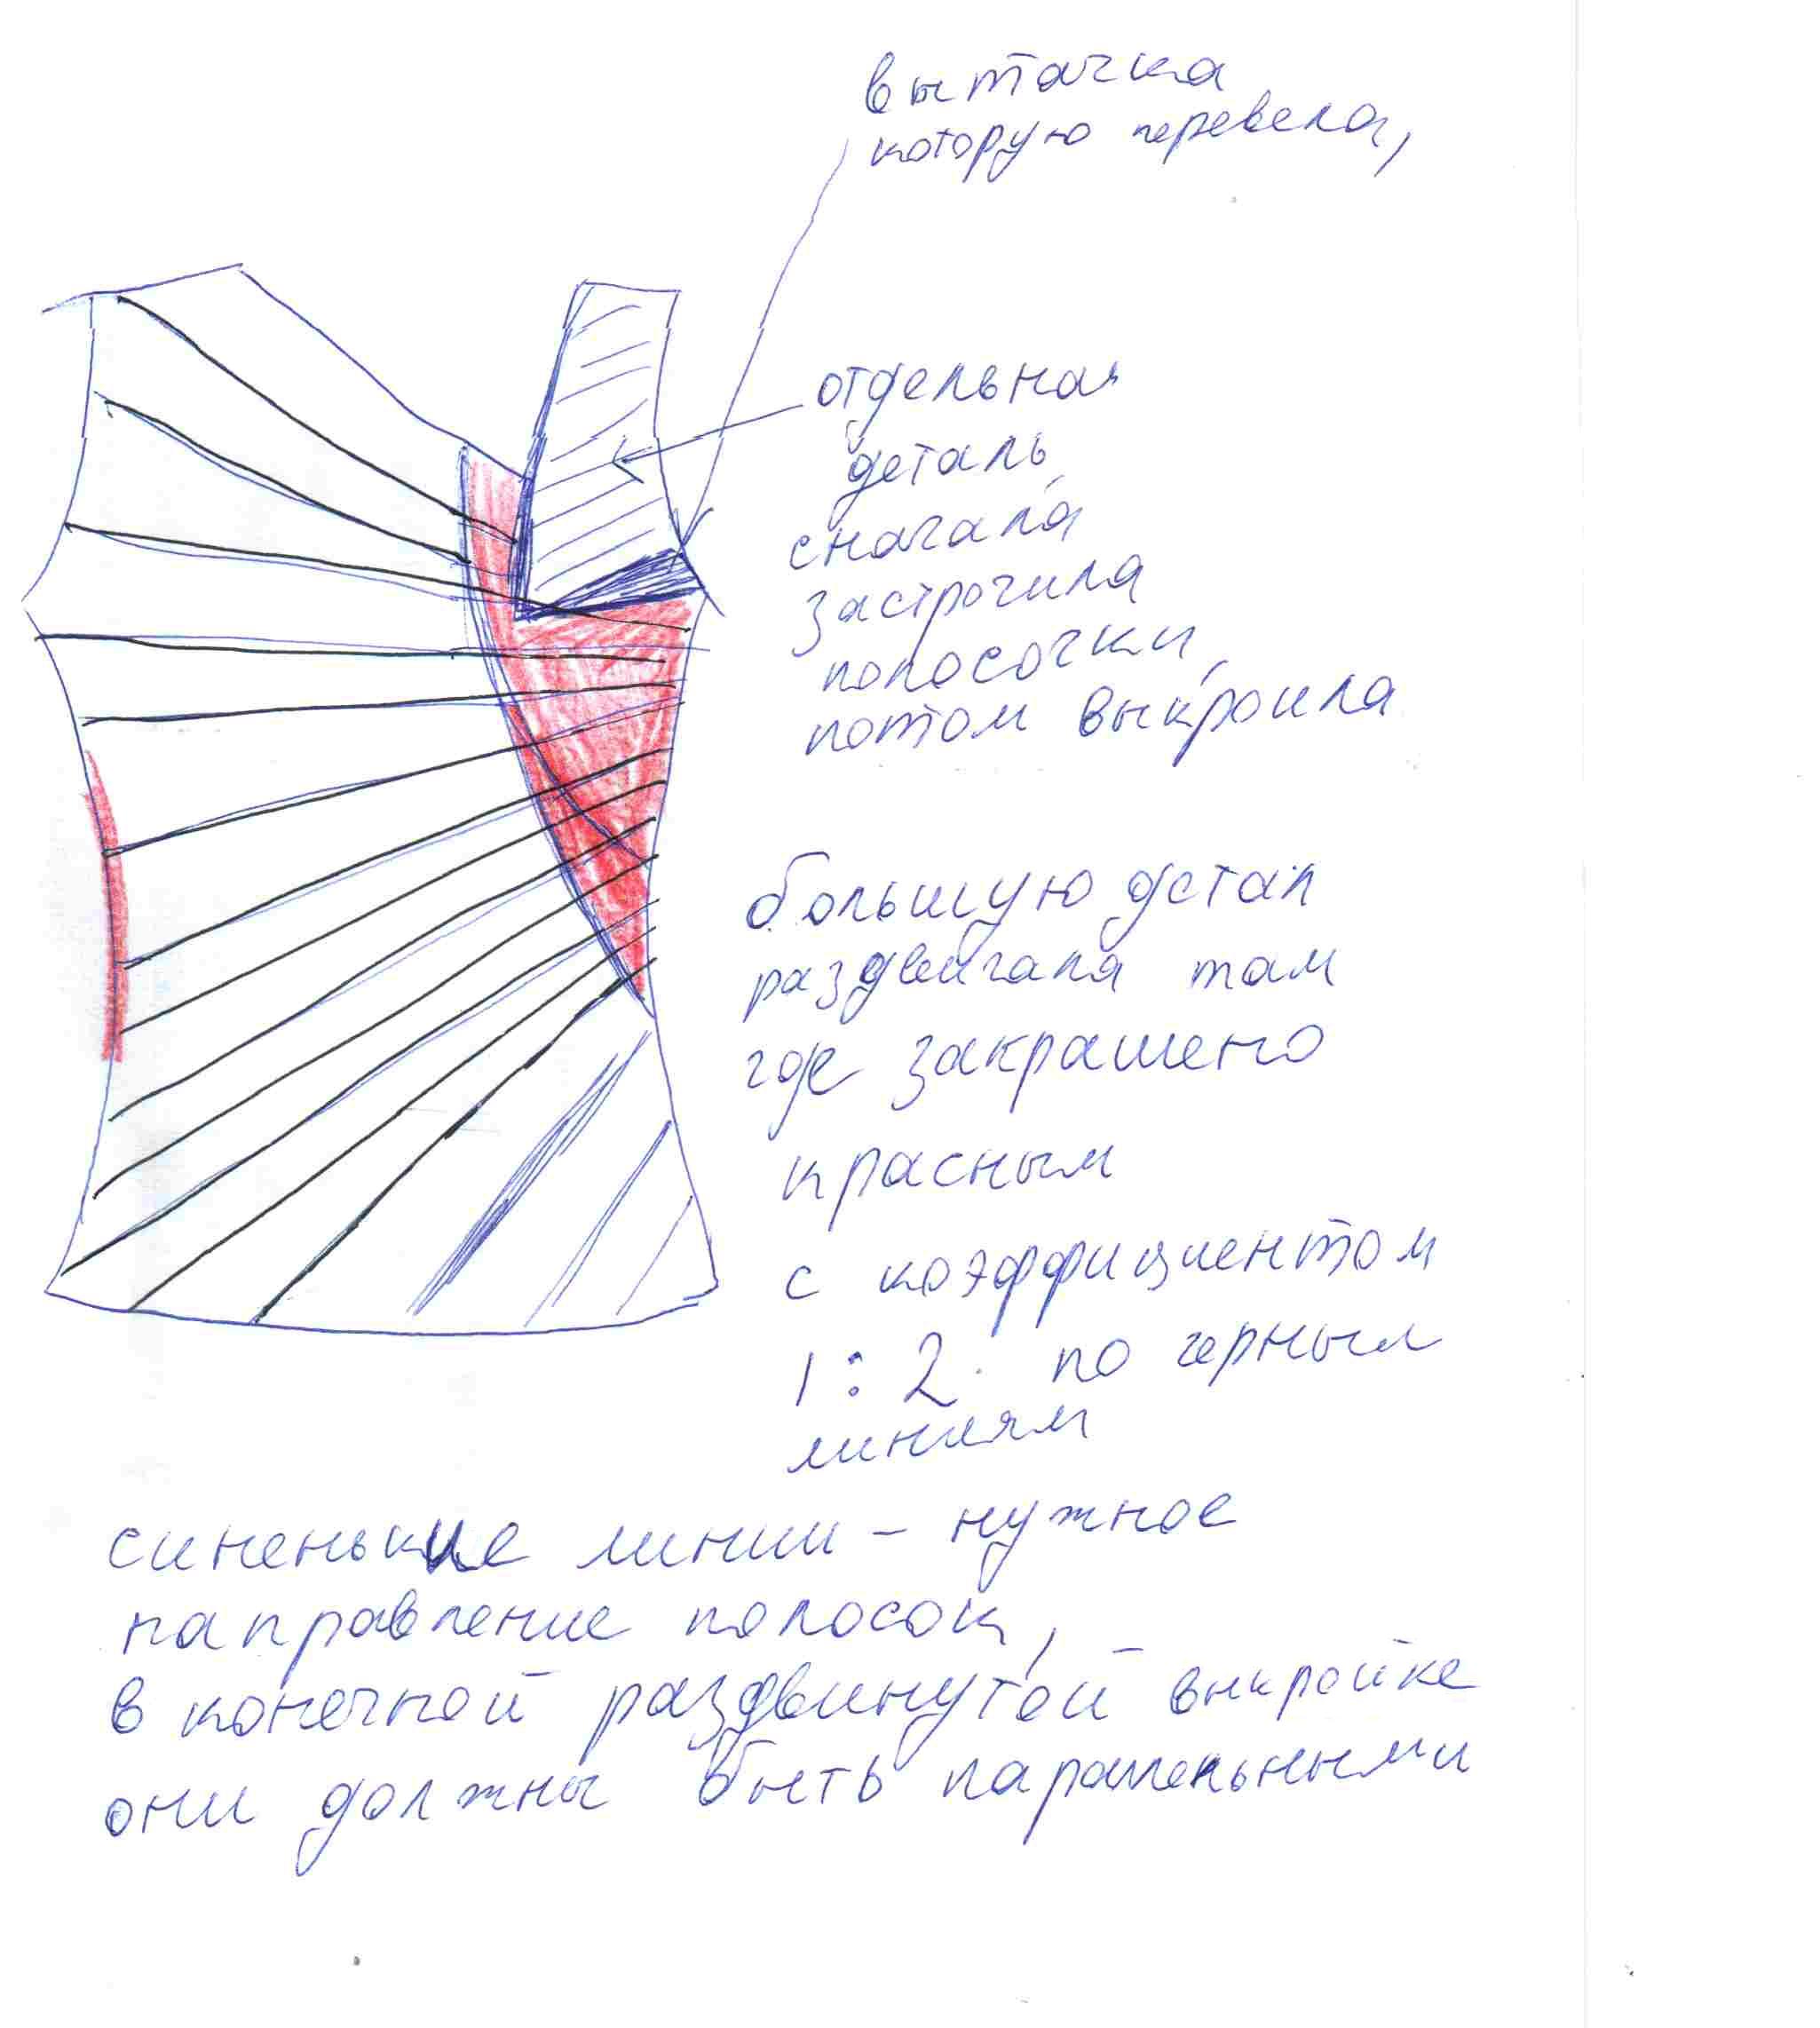 вытачка
которую перевела,
отдельная
деталь,
сначала
застрочила
полосочки,
потом выкроила
большую детал
раздвигала там
где закрашено
красным
с коэффициентом
1:2. по черным
линиям
синенькие линии - нужное
направление полосок,
в конечной раздвинутой выкройке
они должны быть паралельными